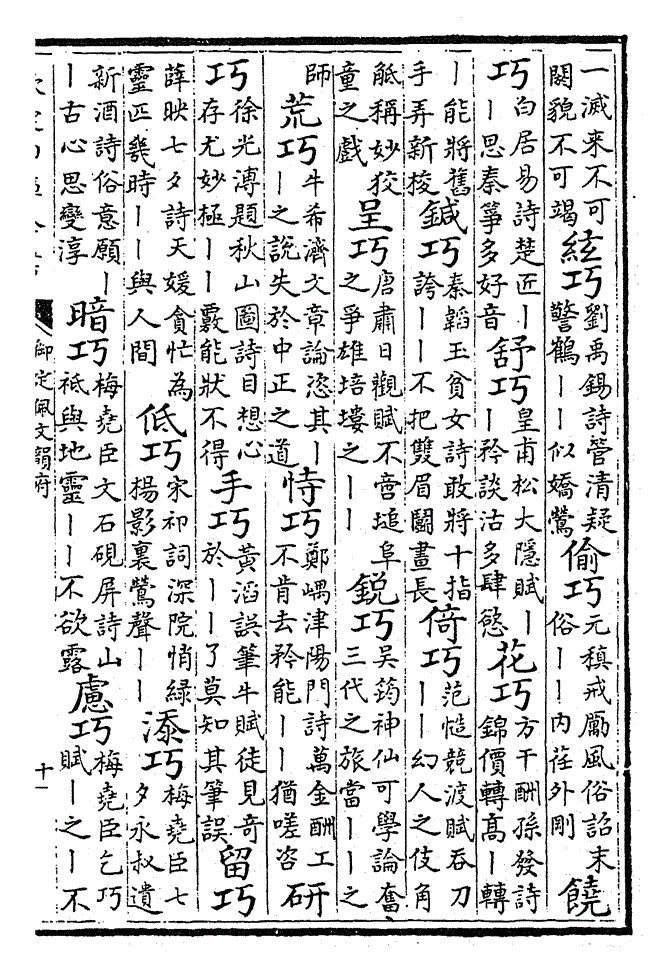 一滅來不可闕貌不可竭 絃巧 劉禹錫詩管清疑警鶴丨丨似嬌鶯 偷巧 元稹戒勵風俗詔末俗丨丨内荏外剛 饒
巧 白居易詩楚匠丨丨思秦箏多好音 舒巧 皇甫松大隱賦丨丨矜談沽多肆慾 花巧 方干酬孫發詩錦價轉高丨轉
丨能將舊手弄新梭 鍼巧 秦韜玉貧女詩敢將十指誇丨丨不把雙眉鬬畫長 倚巧 范慥競渡賦吞刀丨丨幻人之伎角
觝稱妙狡童之戲 呈巧 唐肅日觀賦不啻塠阜之爭雄培塿之丨丨 鋭巧 吴筠神仙可學論奮三代之旅當丨丨之
師 荒巧 牛希濟文章論恣其丨丨之說失於中正之道 恃巧 鄭嵎津陽門詩萬金酬工不肯去矜能丨丨猶嗟咨 研
巧 徐光溥題秋山圖詩目想心存尤妙極丨丨覈能狀不得 手巧 黃滔誤筆牛賦徒見奇於丨丨了莫知其筆誤 留巧
薛映七夕詩天媛貪忙為靈匹幾時丨丨與人間 低巧 宋祁詞深院悄緑楊影裏鶯聲丨丨 添巧 梅堯臣七夕永叔遺
新酒詩俗意願丨丨古心思變淳 暗巧 梅堯臣文石硯屏詩山祇與地靈丨丨不欲露 慮巧 梅堯臣乞巧賦丨之丨不
御定佩文韻府
十一